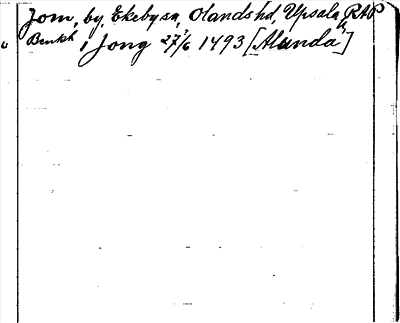 Jom, by, Ekeby sn, Olands hd, Upsala l, RAP
Benkt i Jong 27/6 1493 [Alunda]